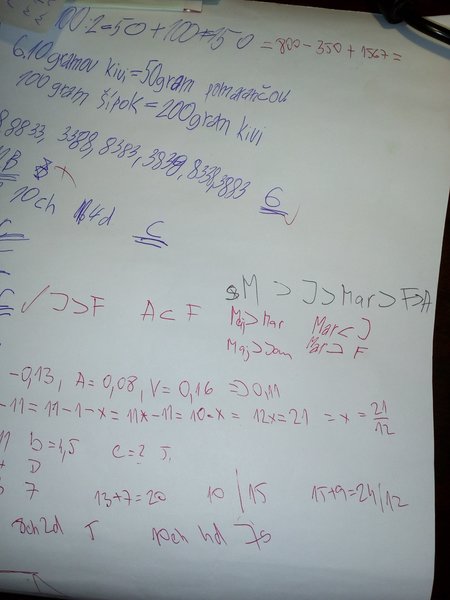 100:2=50+100=150 =800-350+1567=
6.10gramov kivi=50gram pomarančov
100gram šípok=200gram kivi
8833, 3388, 8383, 3838, 8338, 3883 6
B
10ch 4d C
J>F A<F M > J > Mar > F > A
Maj>Mar Mar<J
Maj>Jan Mar>F
-0,13, A=0,08, V=0,16 => 0,11
-11= 11-1-x= 11x-11= 10-x= 12x=21 =x= 21/12
b=4,5 c=? J
D
7 13+7=20 10/15 15+9=24/12
8ch2d 10ch 4d